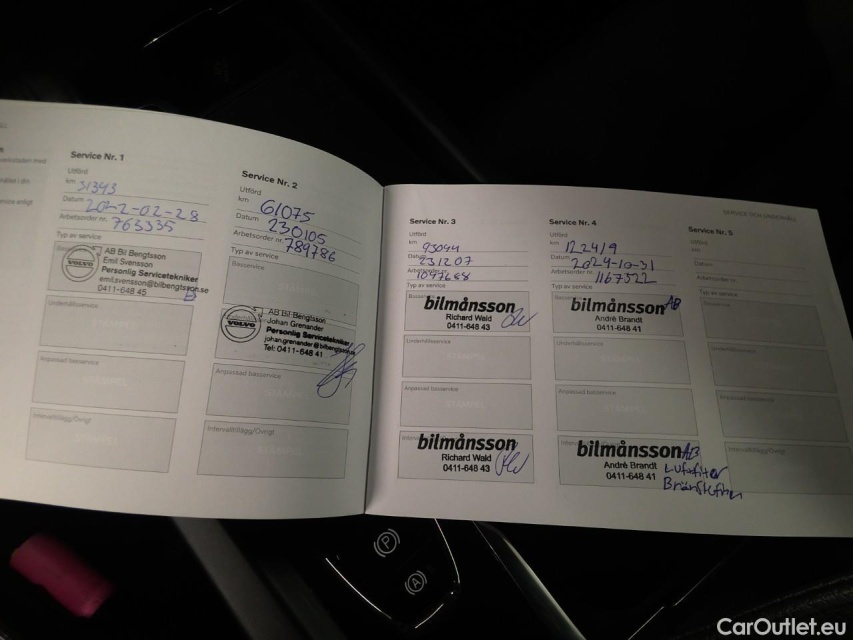 Service Nr. 1
Utförd
km 31393
Datum
Arbetsorder nr. 763335
Typ av service
Basservice
AB Bil Bengtsson
Emil Svensson
Personlig Servicetekniker
emil.svensson@bilbengtsson.se
0411-648 45
VOLVO
Underhållsservice
Anpassad basservice
Intervalltillägg/Övrigt
Service Nr. 2
Utförd
km 61075
Datum 230105
Arbetsorder nr. 789786
Typ av service
Basservice
AB Bil Bengtsson
Johan Grenander
Personlig Servicetekniker
Tel: 0411-648 41
VOLVO
Anpassad basservice
Intervalltillägg/Övrigt
STÄMPEL
Service Nr. 3
Utförd
km 93094
Datum 231207
1097688
Typ av service
bilmånsson
Richard Wald
0411-648 43
Underhållsservice
Anpassad basservice
STÄMPEL
bilmånsson
Richard Wald
0411-648 43
Service Nr. 4
Utförd
km 122419
Datum 2024-10-31
Arbetsorder nr. 1167322
Typ av service
bilmånsson AB
André Brandt
0411-648 41
Underhållsservice
Anpassad basservice
bilmånsson AB
André Brandt
0411-648 41
Luftfilter
Bränslefilter
SERVICE OCH UNDERHÅLL
Service Nr. 5
Utförd
km
Datum
Arbetsorder nr.
Typ av service
Basservice
Underhållsservice
Anpassad basservice
Intervalltillägg/Övrigt
P
A
CarOutlet.eu